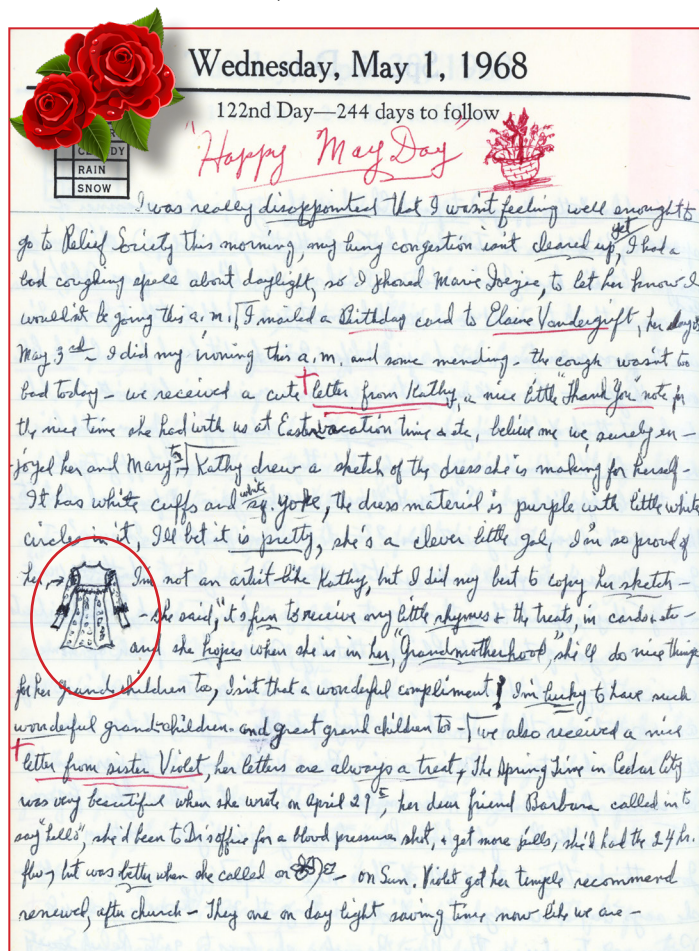 Wednesday, May 1, 1968
122nd Day—244 days to follow
"Happy May Day"
RAIN
SNOW
I was really disappointed that I wasn't feeling well enough to
go to Relief Society this morning, my lung congestion isn't cleared up, yet I had a
bad coughing spell about daylight, so I phoned Marie to let her know I
wouldn't be going this a.m. I mailed a Birthday card to Elaine Vandergrift, her day is
May 3rd - I did my ironing this a.m. and some mending - the cough wasn't too
bad today - we received a cute letter from Kathy, a nice little "Thank You" note for
the nice time she had with us at Easter vacation time & etc, believe me we surely en-
-joyed her and Mary to - Kathy drew a sketch of the dress she is making for herself -
It has white cuffs and white sq. yoke, the dress material is purple with little white
circles in it, I'll bet it is pretty, she's a clever little gal, I'm so proud of
her, → I'm not an artist like Kathy, but I did my best to copy her sketch -
- she said, "it's fun to receive my little rhymes & the treats, in cards & etc -
and she hopes when she is in her, "Grandmotherhood," she'll do nice things
for her grandchildren too, Isn't that a wonderful compliment! I'm lucky to have such
wonderful grand-children - and great grand children to - we also received a nice
letter from sister Violet, her letters are always a treat, The Spring Time in Cedar City
was very beautiful when she wrote on April 29th, her dear friend Barbara called in to
say "hello", she'd been to Dr's office for a blood pressure shot, & get more pills, she'd had the 24 hr.
flu, but was better when she called on - on Sun. Violet got her temple recommend
renewed, after church - They are on day light saving time now like we are -